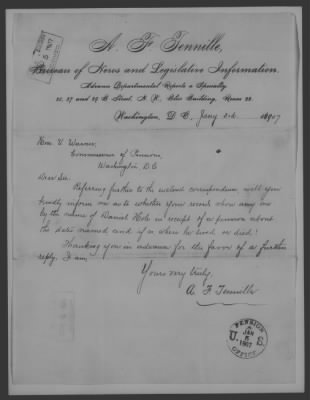 JAN 5 1907
A. F. Tennille,
Bureau of News and Legislative Information.
Advance Departmental Reports a Specialty
Washington, D. C., Jany 3rd 1907
Hon. V. Warner,
Commissioner of Pensions,
Washington D.C.
Dear Sir.
Referring further to the enclosed correspondence will you
kindly inform me as to whether your records show any one
by the name of Daniel Hole in receipt of a pension about
the dates named and if so when he lived or died?
Thanking you in advance for the favor of a further
reply, I am,
Yours very truly,
A. F. Tennille
PENSION
JAN 5 1907
U. S.
OFFICE